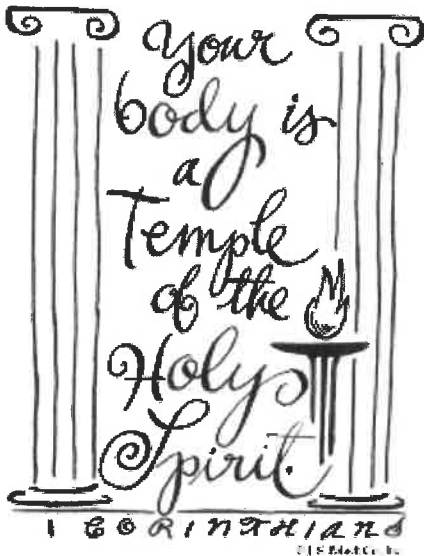 Your
body is
a
Temple
of the
Holy
Spirit.
I CORINTHIANS